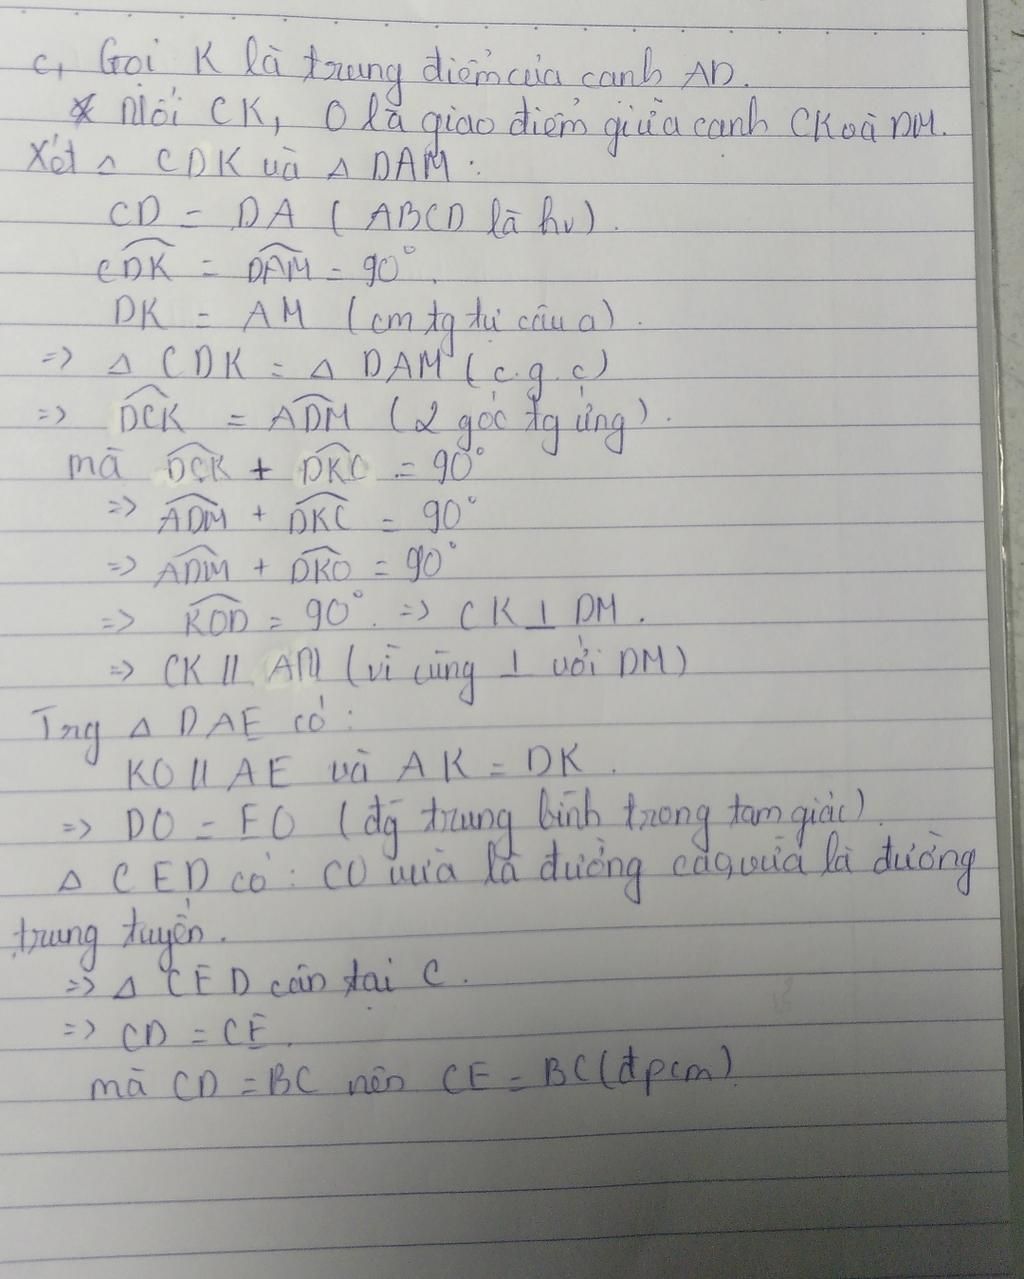 c, Gọi K là trung điểm của cạnh AD.
* Nối CK, O là giao điểm giữa cạnh CK và DM.
Xét △ CDK và △ DAM :
CD = DA ( ABCD là hv ) .
CDK = DAM = 90° .
DK = AM ( cm tg tự câu a ) .
=> △ CDK = △ DAM ( c.g.c )
=> DCK = ADM ( 2 góc tg ứng ) .
mà DCK + DKC = 90°
=> ADM + DKC = 90°
=> ADM + DKO = 90°
=> KOD = 90° . => CK ⊥ DM .
=> CK // AN ( vì cùng ⊥ với DM )
Trg △ DAE có :
KO // AE và AK = DK .
=> DO = EO ( đg trung bình trong tam giác ) .
△ CED có : CO vừa là đường cao, vừa là đường
trung tuyến .
=> △ CED cân tại C .
=> CD = CE .
mà CD = BC nên CE = BC ( đpcm )